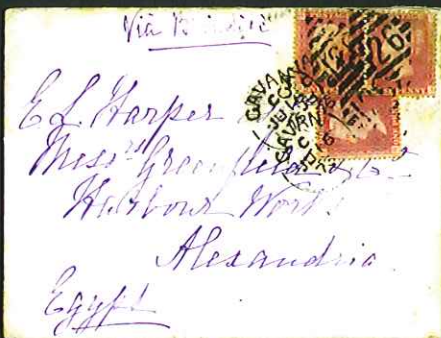 Via Brindisi
E. L. Harper
Messrs Greenfield & Co
Harbour Works
Alexandria
Egypt
CAVAN
CAVAN